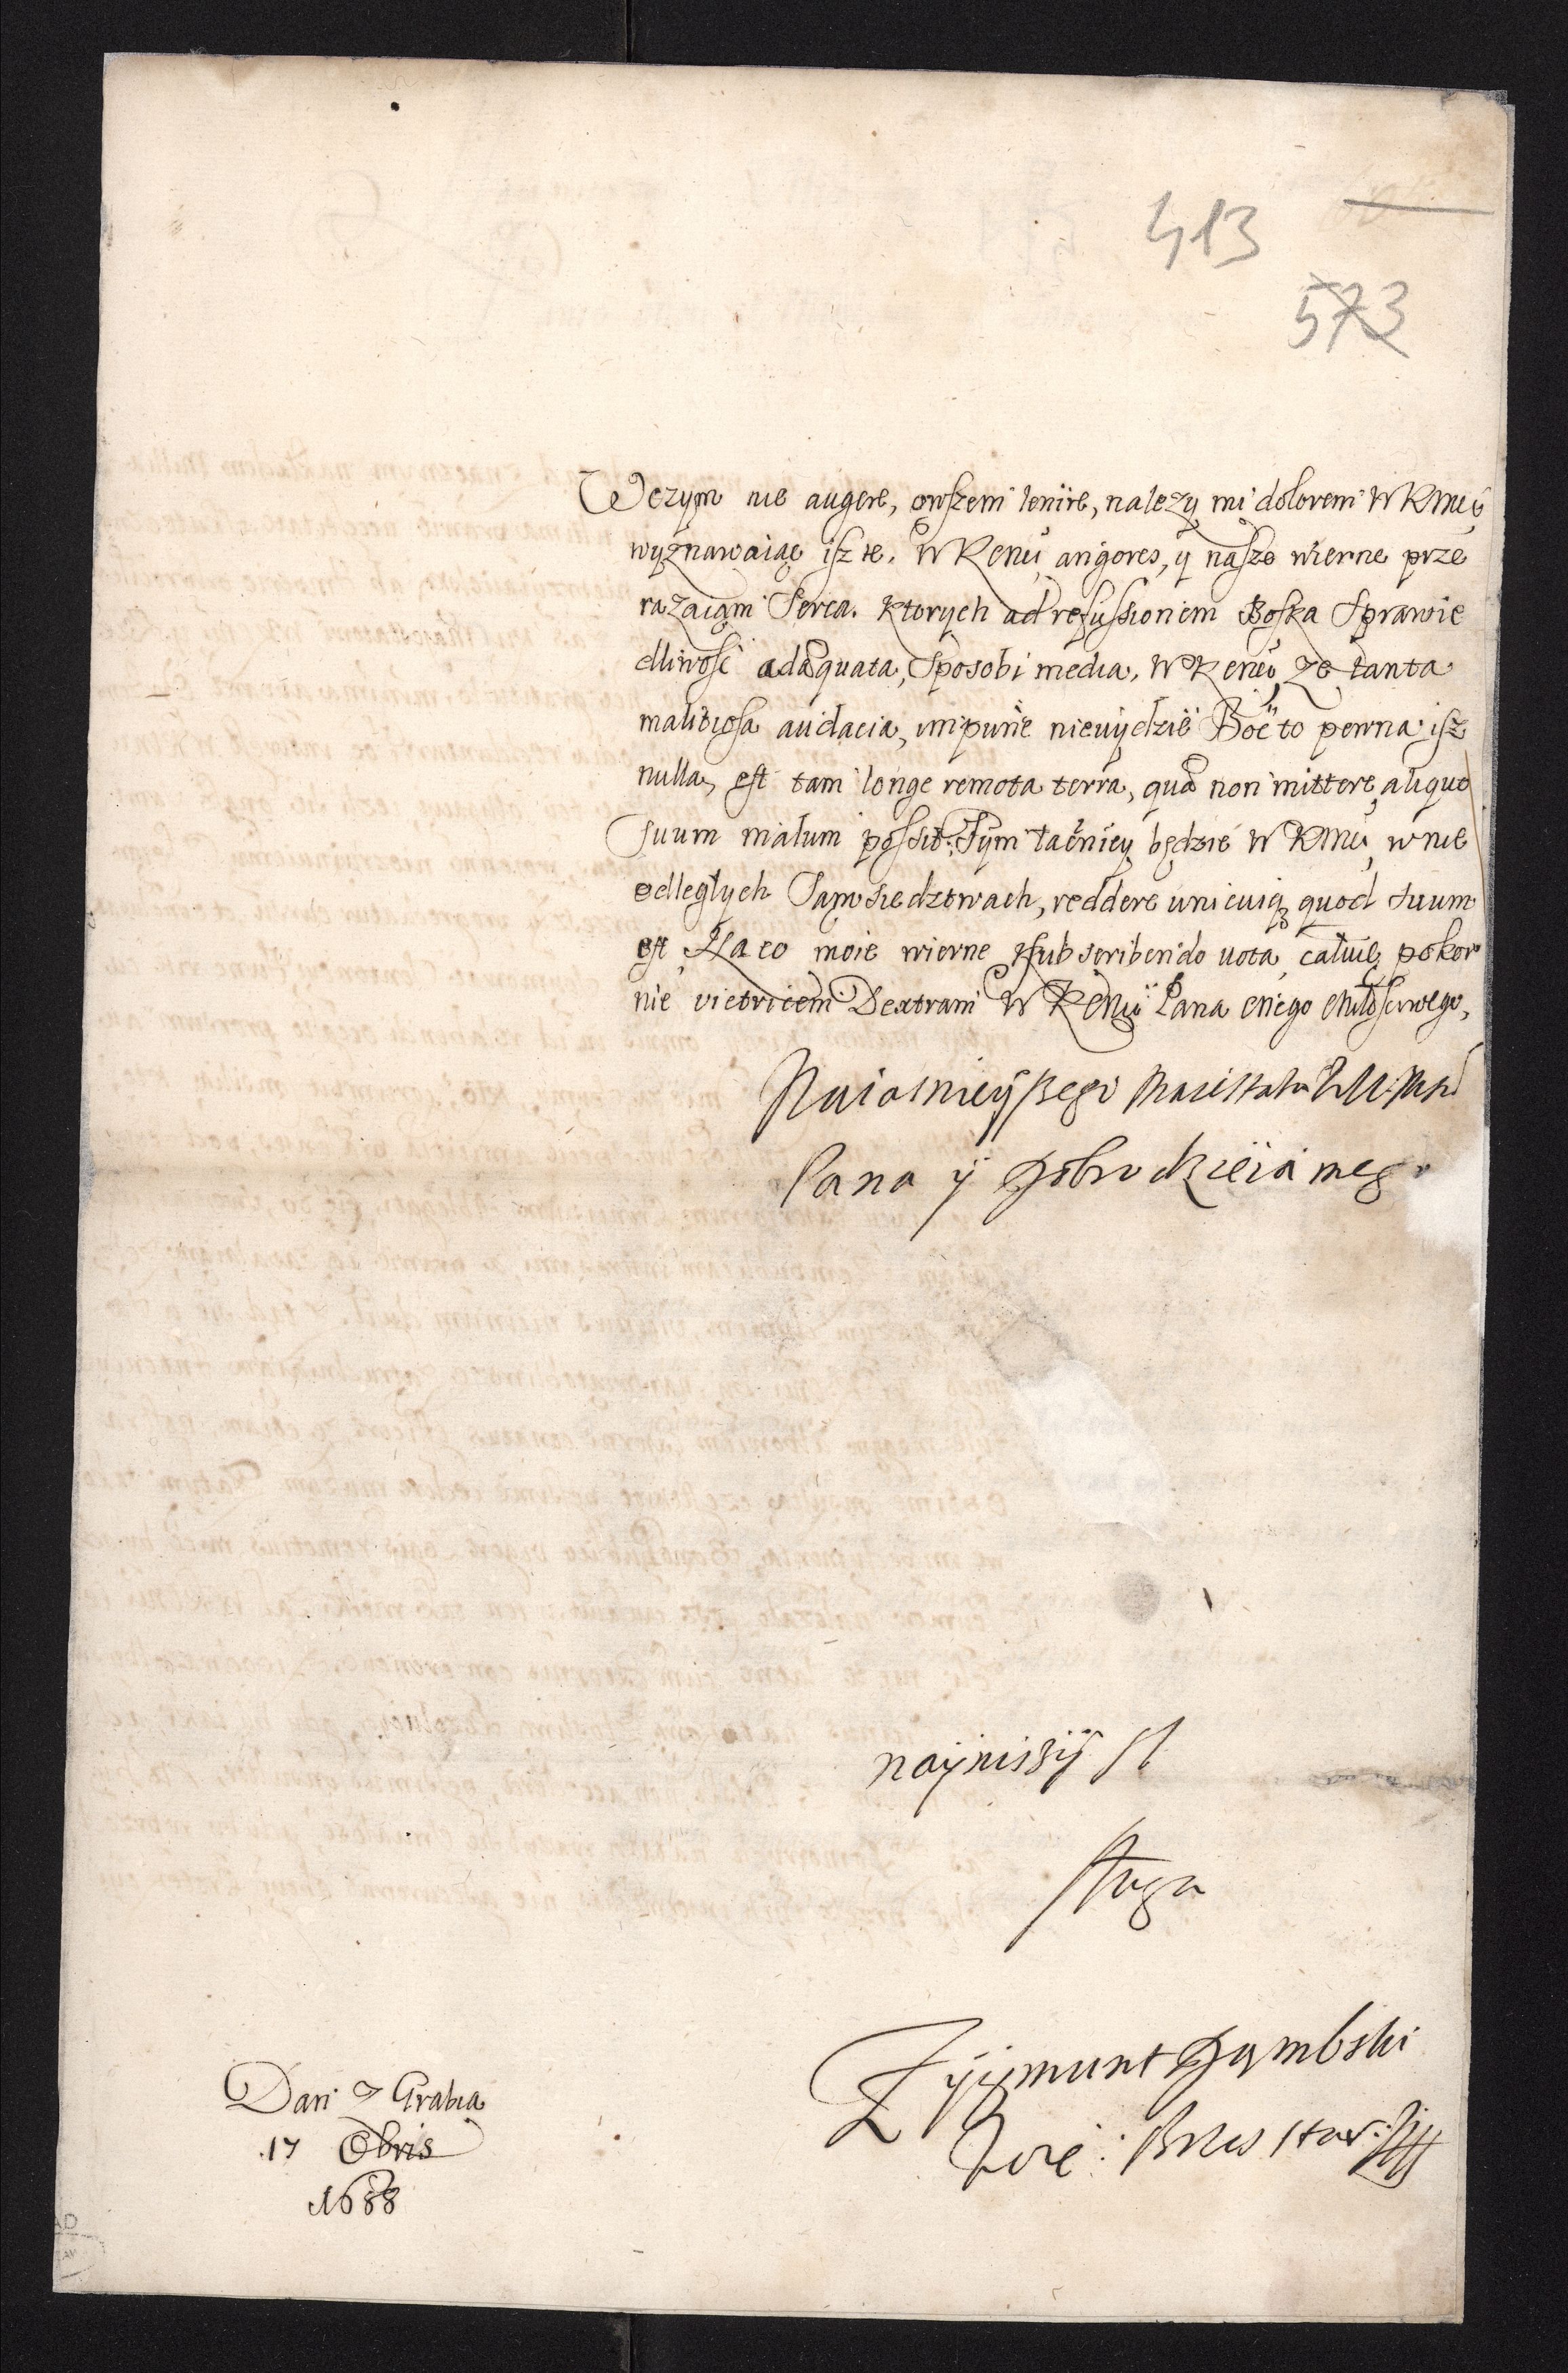 413
573
Wczym nie augere, owszem lenire, nalezy mi dolorem WKMci
wyznawaiąc isz te, WKCMci angores, y nasze wierne prze
razaią Serca. Ktorych ad refussionem Boska Sprawie
dliwosć adæquata, Sposobi media, WKCMci ze tanta
malitiosa audacia, impune nieuydzie Boć to pewna isz
nulla, est tam longe remota terra, quæ non mittere aliquo
suum malum possit. Tym łacniey będzie WKMci, w nie
odległych Sąmsiedztwach, reddere unicuiq quod suum
est, Na co moie wierne subscribendo uota, całuię pokor
nie victricem Dextram WKCMci Pana Mego Miłosciwego,
Naiasnieyszego Maiestatu
Pana y Dobrodzieia mego
nayniszsy
sługa
Zygmunt Dąmbski
Woie: Brzes
Dan z Grabia
17 Obris
1688